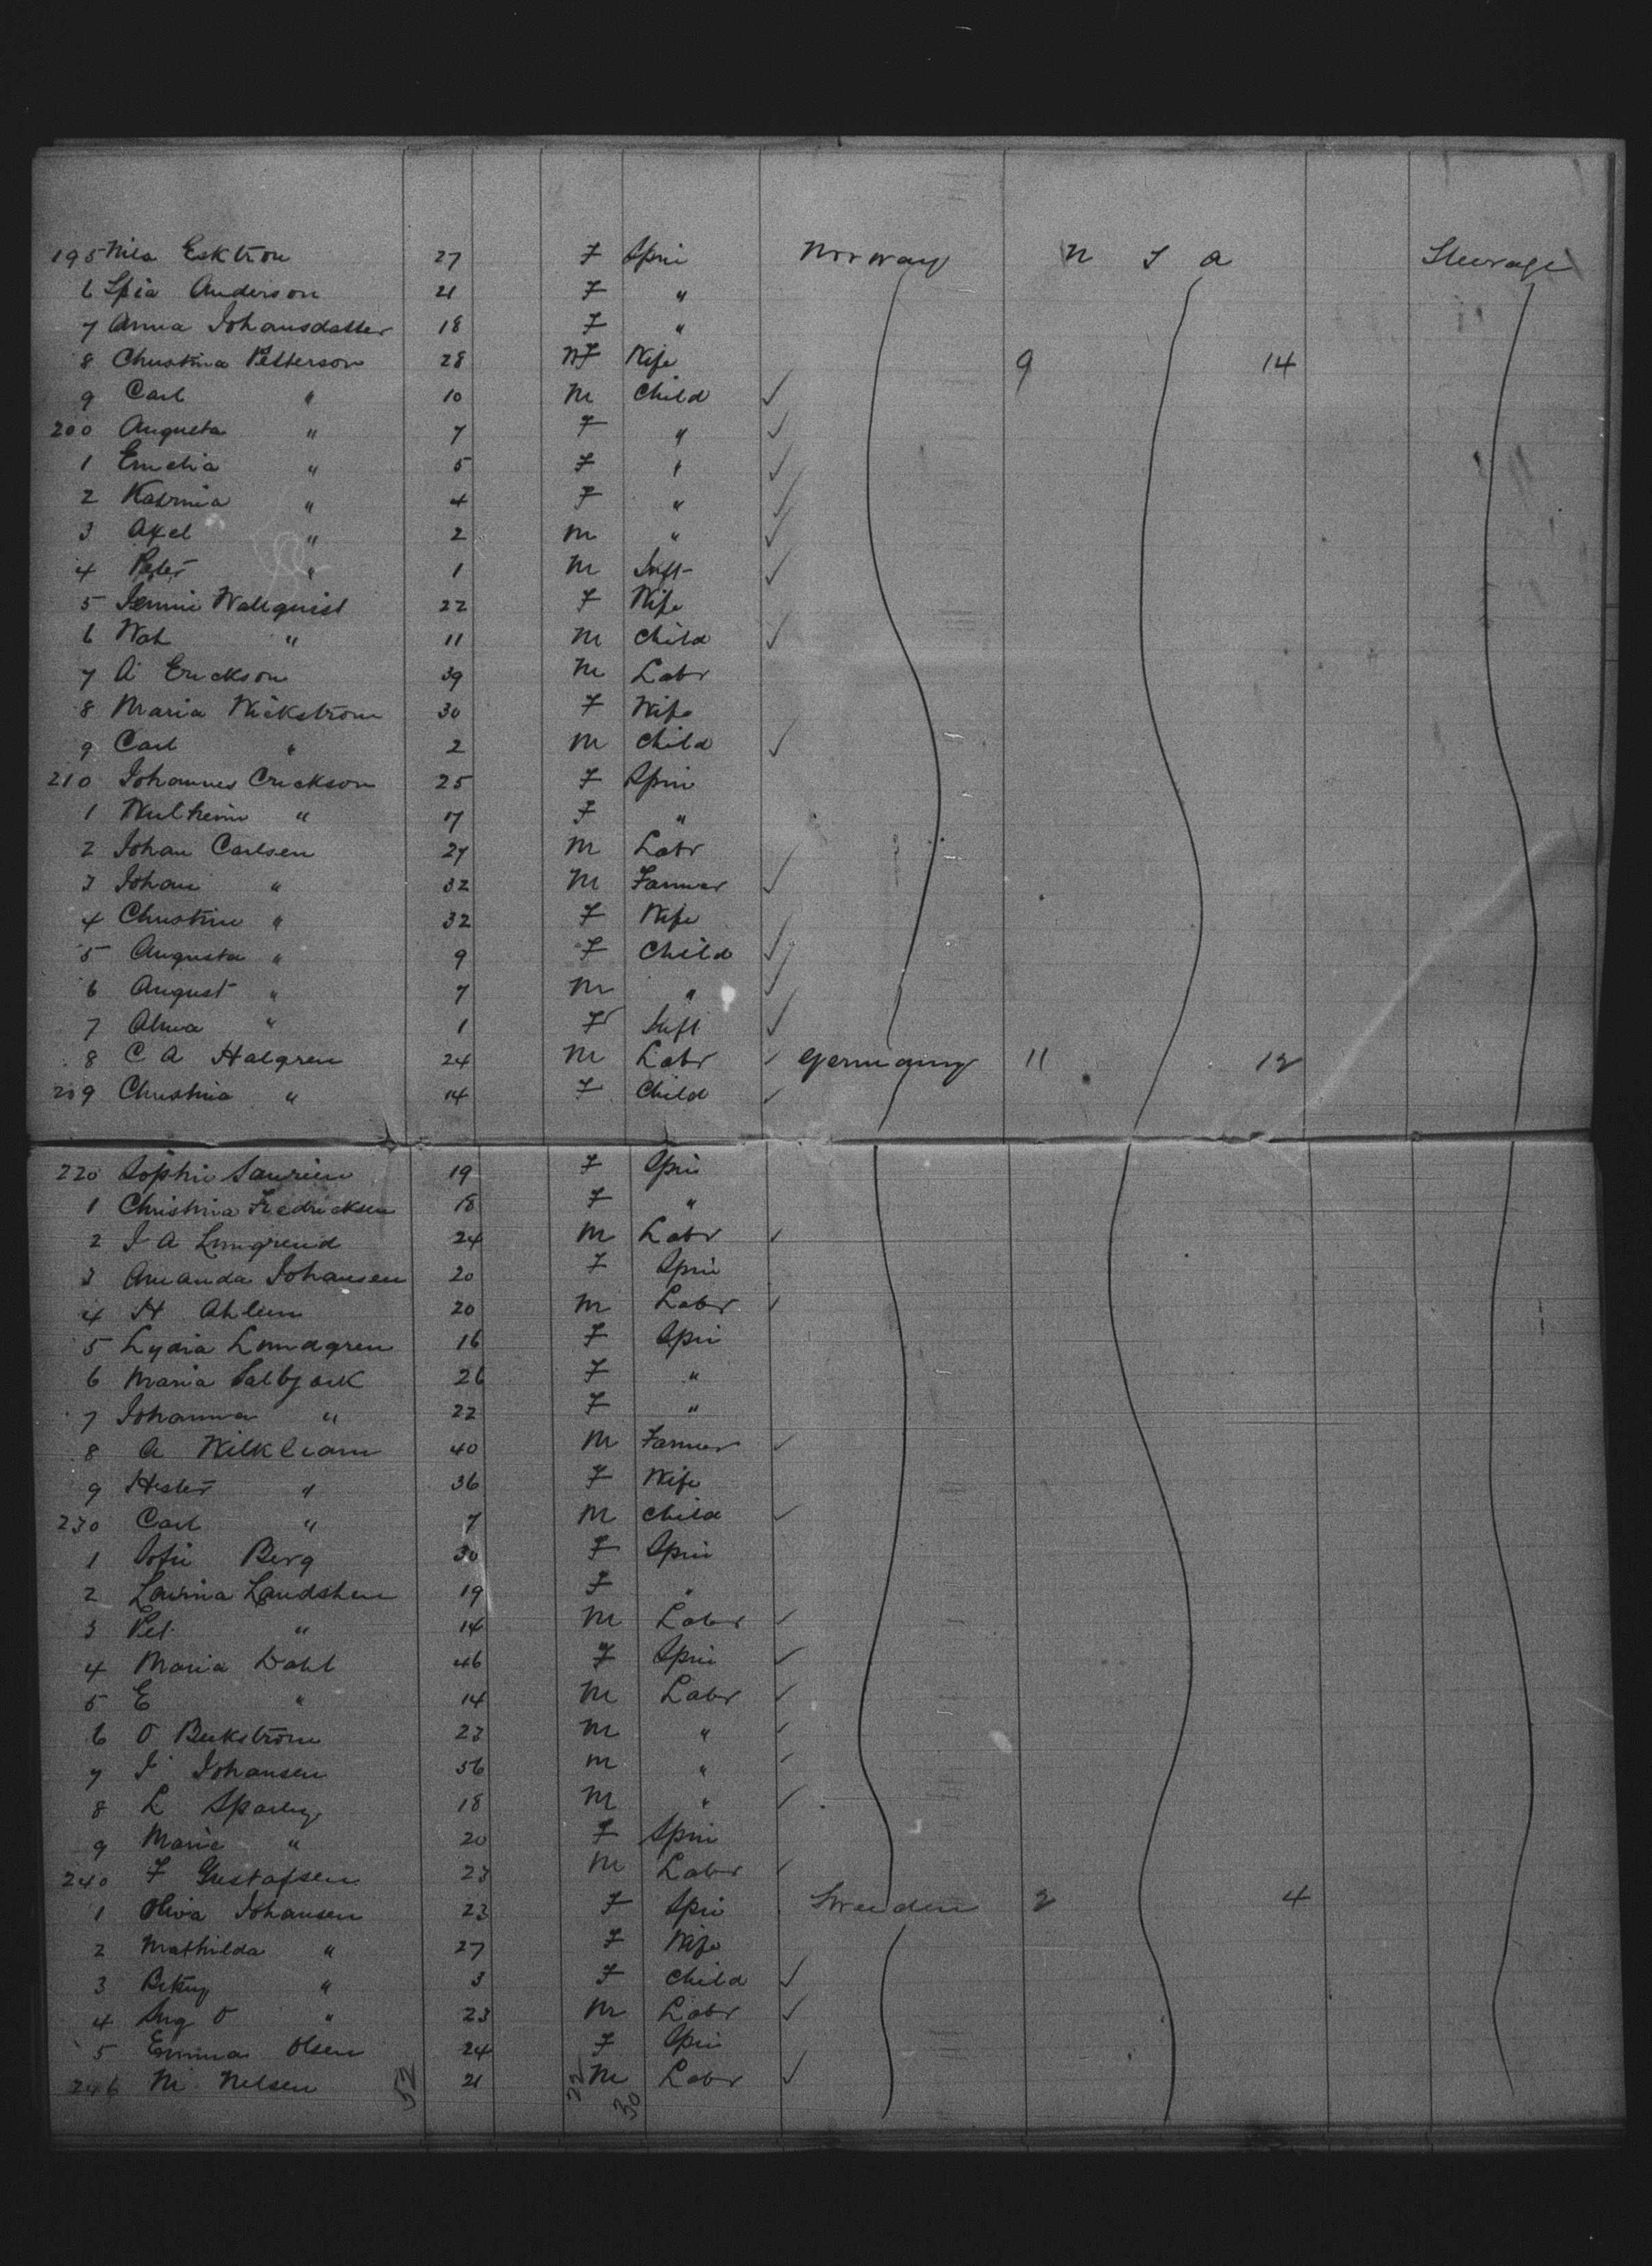 195 Nila Ekstron 27 F Spin Norway U S A Steerage
6 Spia Anderson 21 F "
7 Anna Johansdatter 18 F "
8 Christina Petterson 28 F Wife 9 14
9 Carl " 10 M Child ✓
200 Augusta " 7 F " ✓
1 Emelia " 5 F " ✓
2 Katrnia " 4 F " ✓
3 Axel " 2 M " ✓
4 Peter " 1 M Inft ✓
5 Jenni Wallquist 22 F Wife
6 Wah " 11 M Child ✓
7 A Erickson 39 M Labr
8 Maria Wickström 30 F Wife
9 Carl " 2 M Child ✓
210 Johannes Erickson 25 F Spin
1 " 17 F "
2 Johan Carlsen 27 M Labr
3 Johan " 32 M Farmer ✓
4 Christine " 32 F Wife
5 Augusta " 9 F Child ✓
6 August " 7 M " ✓
7 Alma " 1 F Inft ✓
8 C A Halgren 24 M Labr ✓ Germany 11 12
209 Christina " 14 F Child ✓
220 Sophie 19 F Spin
1 Christina Fredricksen 18 F "
2 J A 24 M Labr ✓
3 Amanda Johansen 20 F Spin
4 H Ahlum 20 M Labr ✓
5 Lydia Lundgren 16 F Spin
6 Maria 26 F "
7 Johanna " 22 F "
8 A 40 M Farmer ✓
9 Hester " 36 F Wife
230 Carl " 7 M Child ✓
1 Sofie Berg 30 F Spin
2 19 F "
3 Pet " 14 M Labr ✓
4 Maria Dahl 46 F Spin ✓
5 E " 14 M Labr ✓
6 O Beckström 23 M " ✓
7 J Johansen 56 M " ✓
8 L 18 M " ✓
9 Maria " 20 F Spin
240 F Gustafsen 23 M Labr ✓
1 Oliva Johansen 23 F Spin Sweeden 2 4
2 Mathilda " 27 F Wife
3 " 3 F Child ✓
4 Aug O " 23 M Labr ✓
5 Emma Olsen 24 F Spin
246 M Nelsen 21 M Labr ✓
52 22 30